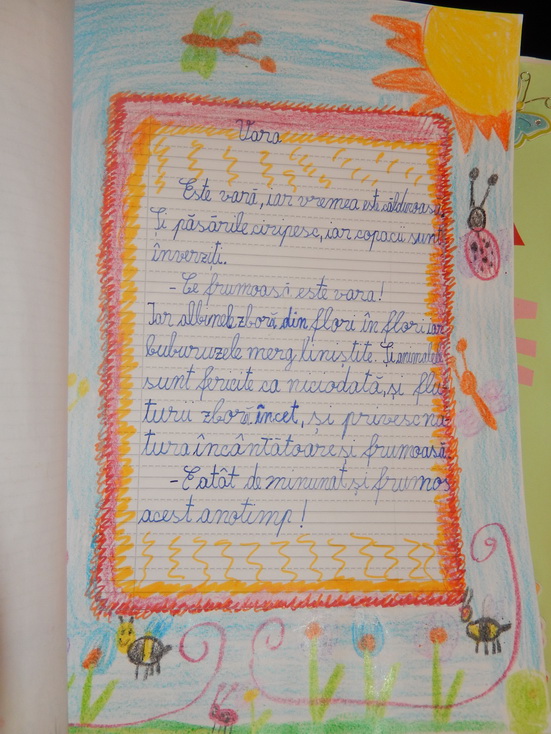 Vara
Este vară, iar vremea este căldiroasă.
Și păsările ciripesc, iar copacii sunt
înverziți.
- Ce frumoasă este vara!
Iar albinele zboră din flori în flori iar
buburuzele merg liniștite. Și animalele
sunt fericite ca niciodată, și flu
turii zboră încet, și privesc na
tura încântătoare și frumoasă.
- E atât de minunat și frumos
acest anotimp!